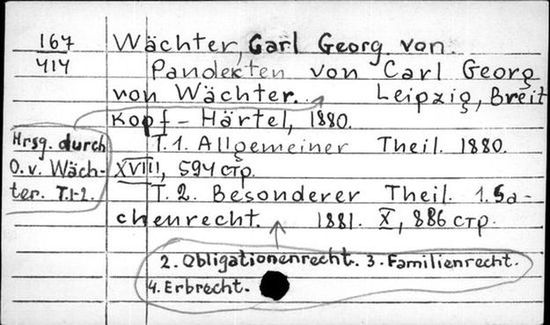 167
414
Wächter, Carl Georg von.
Pandekten von Carl Georg
von Wächter. Leipzig, Breit
Kopf - Härtel, 1880.
Hrsg. durch
O. v. Wäch-
ter. T.1-2.
T. 1. Allgemeiner Theil. 1880.
XVIII, 594 стр.
T. 2. Besonderer Theil. 1. Sa-
chenrecht. 1881. X, 886 стр.
2. Obligationenrecht. 3. Familienrecht.
4. Erbrecht.